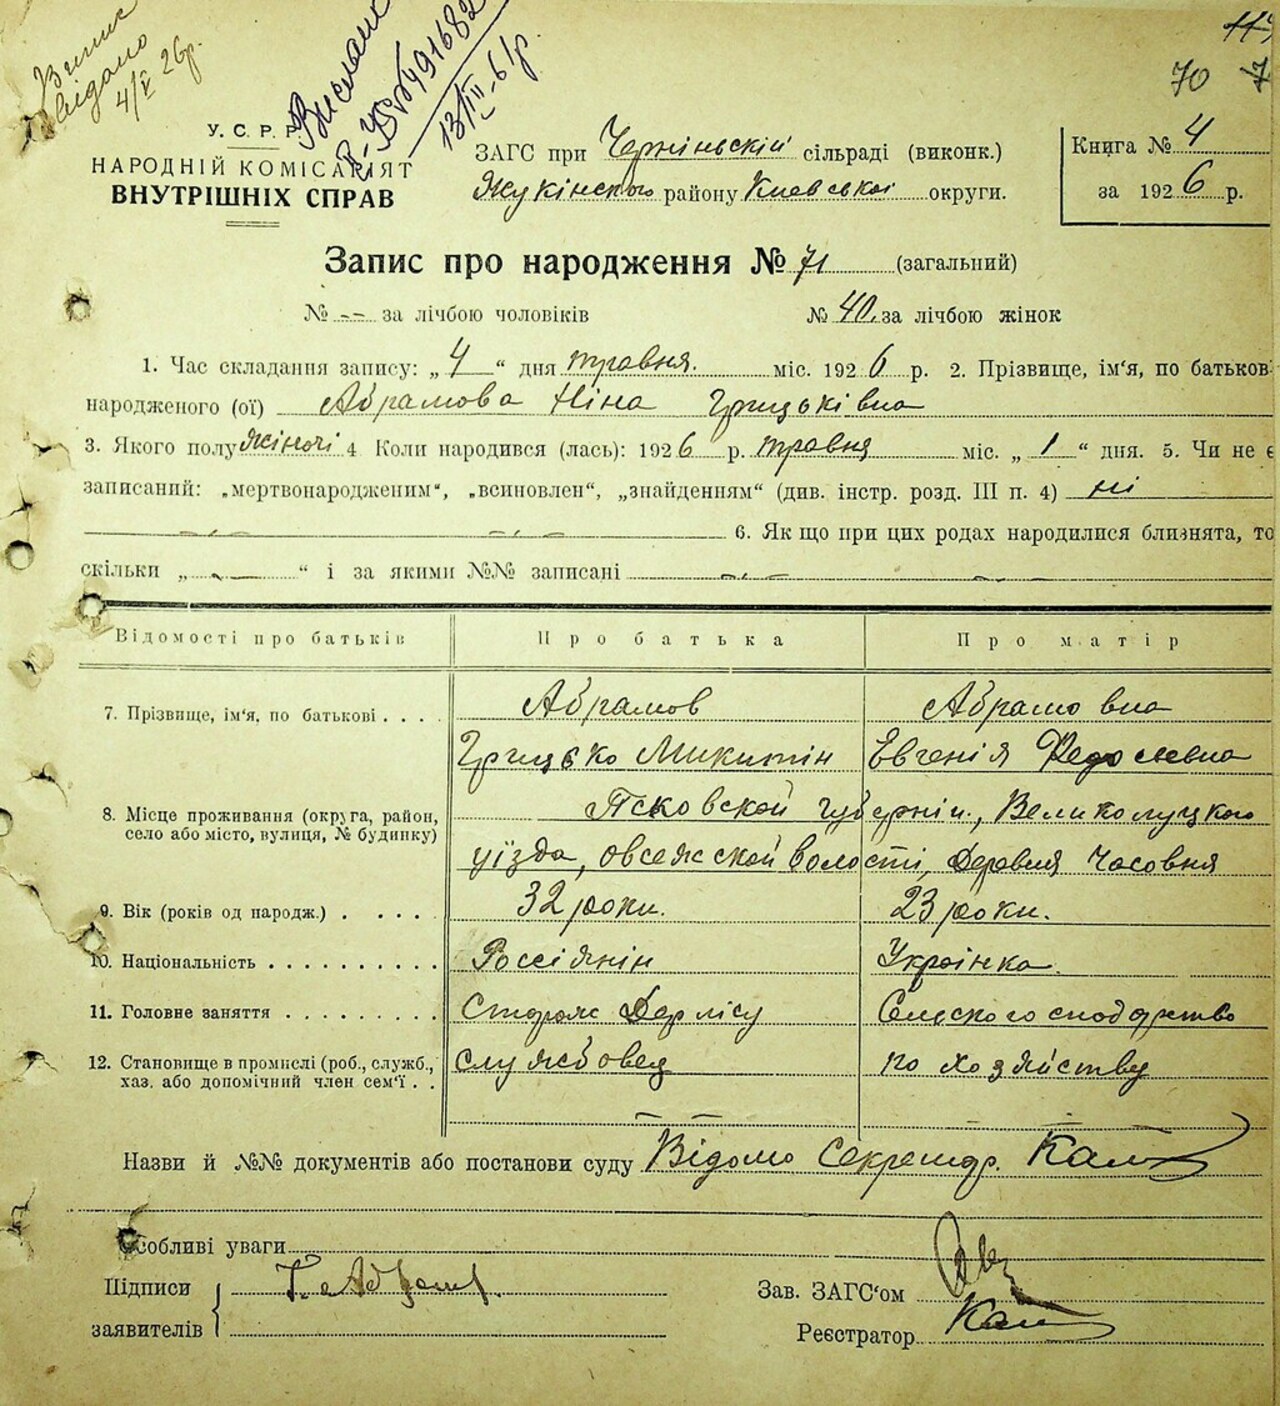 Випис
видано
4/V 26р.
Вислано
13/III-61р.
117
70
У. С. Р. Р.
НАРОДНІЙ КОМІСАРІЯТ
ВНУТРІШНІХ СПРАВ
ЗАГС при Черніньскій сільраді (виконк.)
Жукінского району Киевської округи.
Книга № 4
за 1926 р.
Запис про народження № 71 (загальний)
№ -- за лічбою чоловіків № 40. за лічбою жінок
1. Час складання запису: „ 4 “ дня травня. міс. 1926 р. 2. Прізвище, ім‘я, по батькові
народженого (ої) Абрамова Ніна Грицьківна
3. Якого полу жіночі 4. Коли народився (лась): 1926 р. травня міс. „ 1 “ дня. 5. Чи не є
записаний: „мертвонародженим“, „всиновлен“, „знайденням“ (див. інстр. розд. III п. 4) ні
6. Як що при цих родах народилися близнята, то
скільки „ - “ і за якими №№ записані
Відомості про батьків Про батька Про матір
7. Прізвище, ім‘я, по батькові . . . . Абрамов Абрамовна
Грицько Микитін Евгенія Федосіевна
8. Місце проживання (округа, район,
село або місто, вулиця, № будинку)
Псковской губерніи., Великолуцкого
уїзда, овсежской волості, Деревня Часовня
9. Вік (років од народж.) . . . . . 32 роки. 23 роки.
10. Національність . . . . . . . . . . Россіянін Українка.
11. Головне заняття . . . . . . . . . Сторож Держлісу Сельского сподарство
12. Становище в промислі (роб., служб.,
хаз. або допомічний член сем‘ї . .
службовец по хозяйству
Назви й №№ документів або постанови суду Відомо Секретар.
Особливі уваги
Підписи
заявителів
Г. Абрамов
Зав. ЗАГС‘ом
Реєстратор